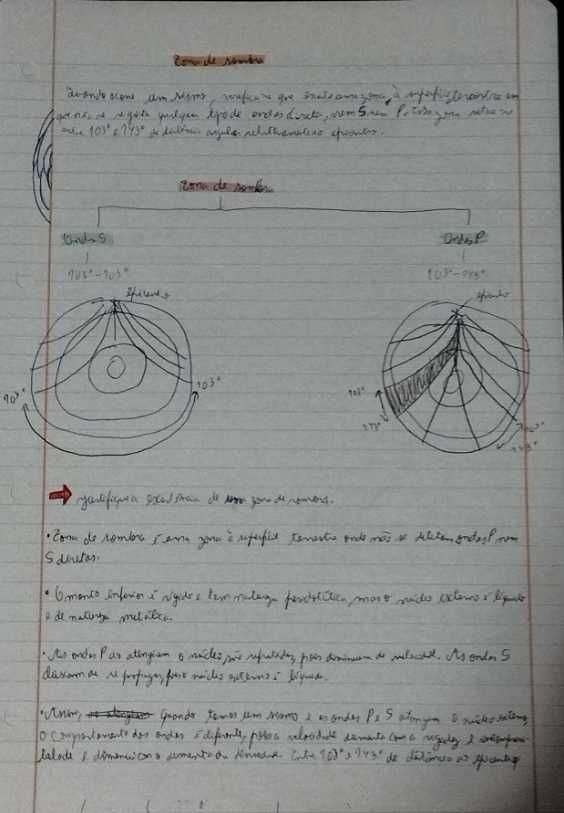 Zona de sombra
Quando ocorre um sismo, verifica-se que existe uma zona, à superfície terrestre em
que não se regista qualquer tipo de ondas diretas, nem S nem P. Esta zona
entre 103° e 143° de distância angular relativamente ao epicentro.
Zona de sombra
Ondas S
Ondas P
103°-103°
103°-143°
epicentro
epicentro
103°
103°
103°
143°
103°
143°
Justifique a existência de uma zona de sombra.
• Zona de sombra é uma zona à superfície terrestre onde não se detetam ondas P nem
S diretas.
• O manto inferior é rígido e tem natureza peridotítica, mas o núcleo externo é líquido
e de natureza metálica.
• As ondas P ao atingirem o núcleo, são refratadas, pois diminuem de velocidade. As ondas S
deixam de se propagar, pois o núcleo externo é líquido.
• Assim, quando temos um sismo e as ondas P e S atingem o núcleo externo
o comportamento das ondas é diferente, pois a velocidade aumenta com a rigidez e
e diminui com o aumento da densidade. Entre 103° e 143° de distância ao epicentro